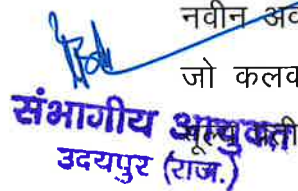 नवीन
जो कलव
संभागीय आयुक्त
उदयपुर (राज.)